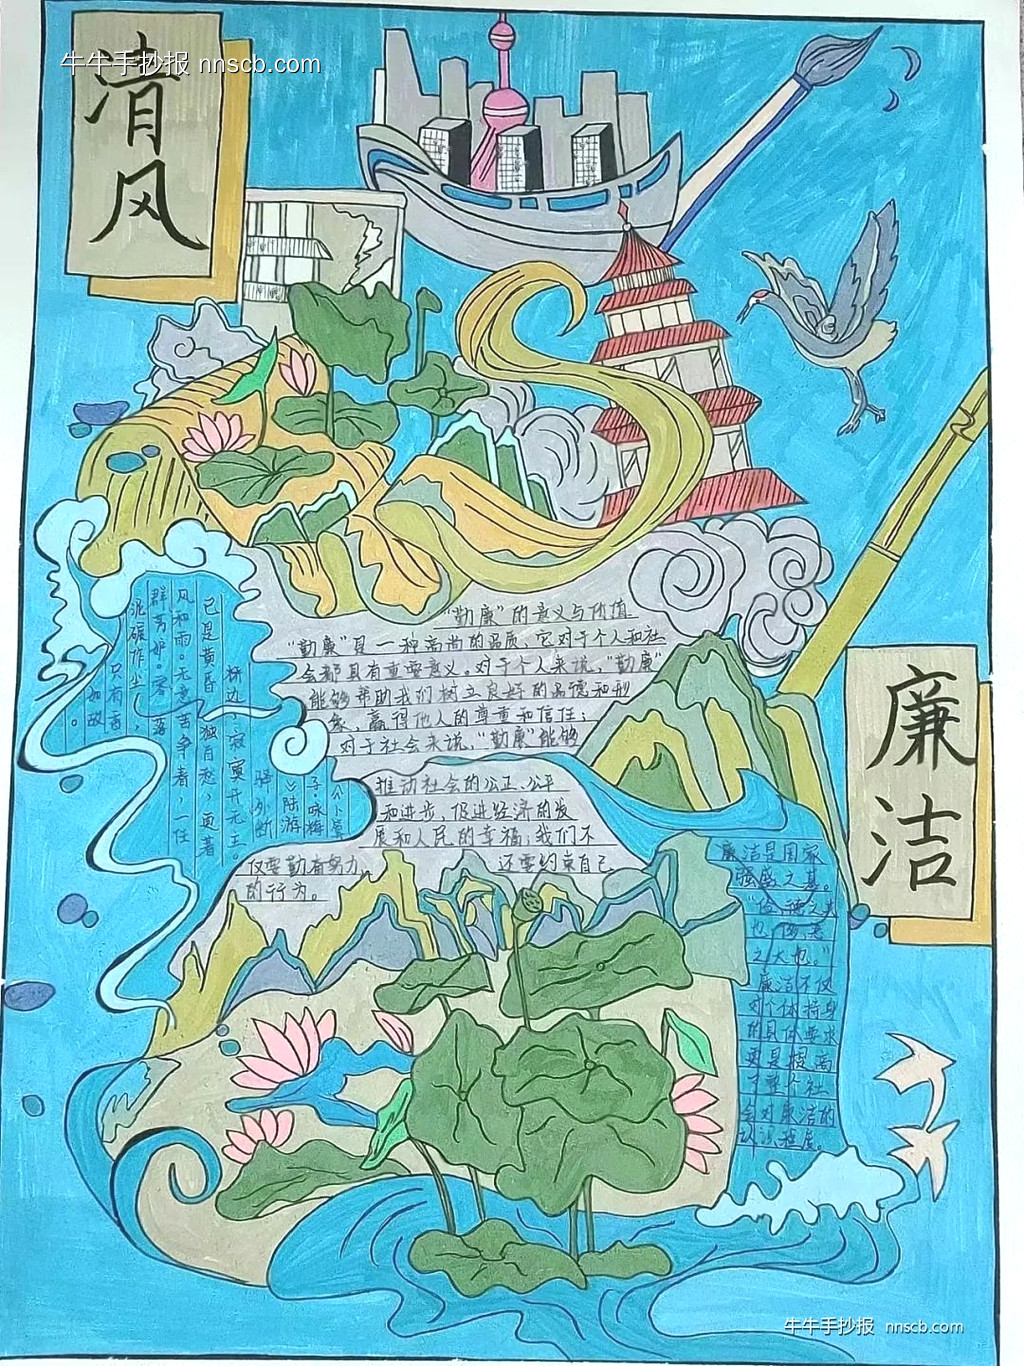 牛牛手抄报 nnscb.com
清
风
"勤廉"的意义与价值
"勤廉"是一种高尚的品质，它对于个人和社
会都具有重要意义。对于个人来说，"勤廉"
能够帮助我们树立良好的品德和形
象，赢得他人的尊重和信任；
对于社会来说，"勤廉"能够
推动社会的公正、公平
和进步，促进经济的发
展和人民的幸福；我们不
仅要勤奋努力，还要约束自己
的行为。
《卜算
子·咏梅
》陆游
驿外断
桥边，寂寞开无主。
已是黄昏独自愁，更著
风和雨。无意苦争春，一任
群芳妒。零落
泥碾作尘，
只有香
如故
。
廉
洁
廉洁是国家
强盛之基。
"俭，德之共
也，侈，恶
之大也。"
廉洁不仅
对个体持身
的具体要求
更是提高
了整个社
会对廉洁的
认识程度。
牛牛手抄报 nnscb.com